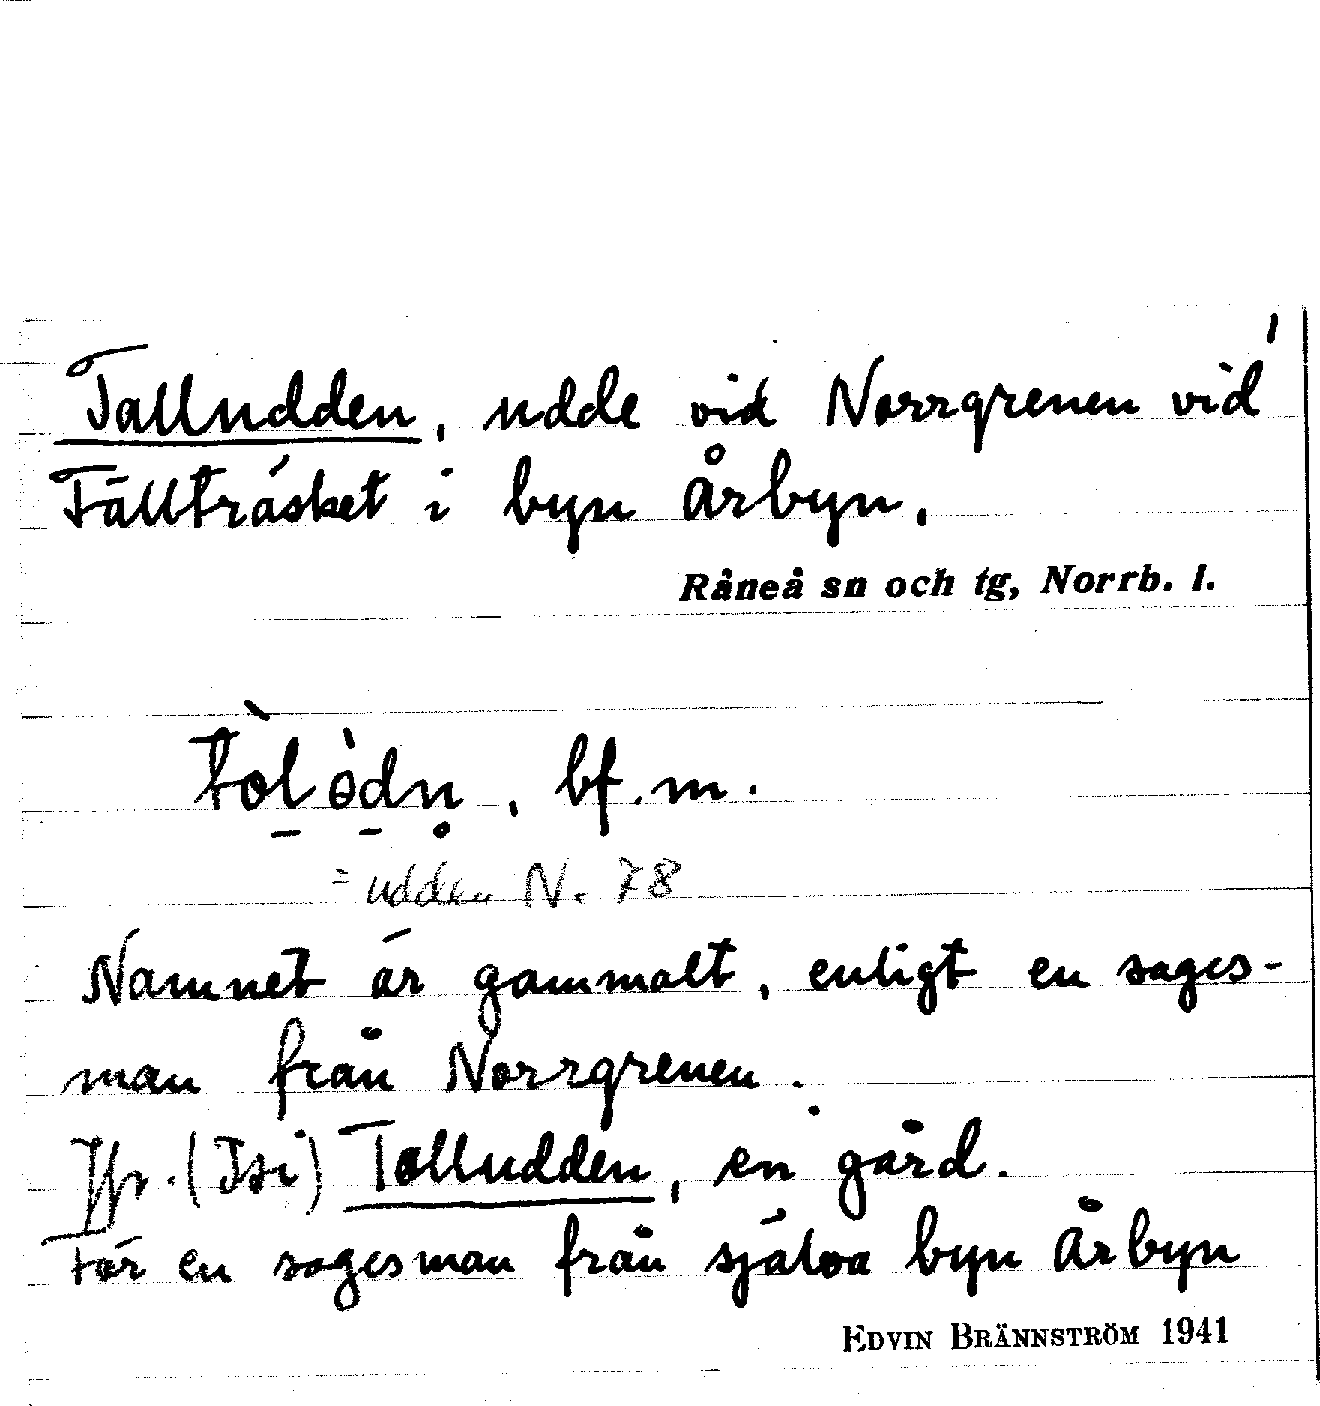 Talludden, udde vid Norrgrenen vid
Tällträsket i byn Årbyn.
Råneå sn och tg, Norrb. l.
tòlòdn, bf. m.
= udden N. 78
Namnet är gammalt, enligt en sages-
man från Norrgrenen.
Jfr. (Isi) Talludden, en gård.
För en sagesman från själva byn Årbyn
EDVIN BRÄNNSTRÖM 1941